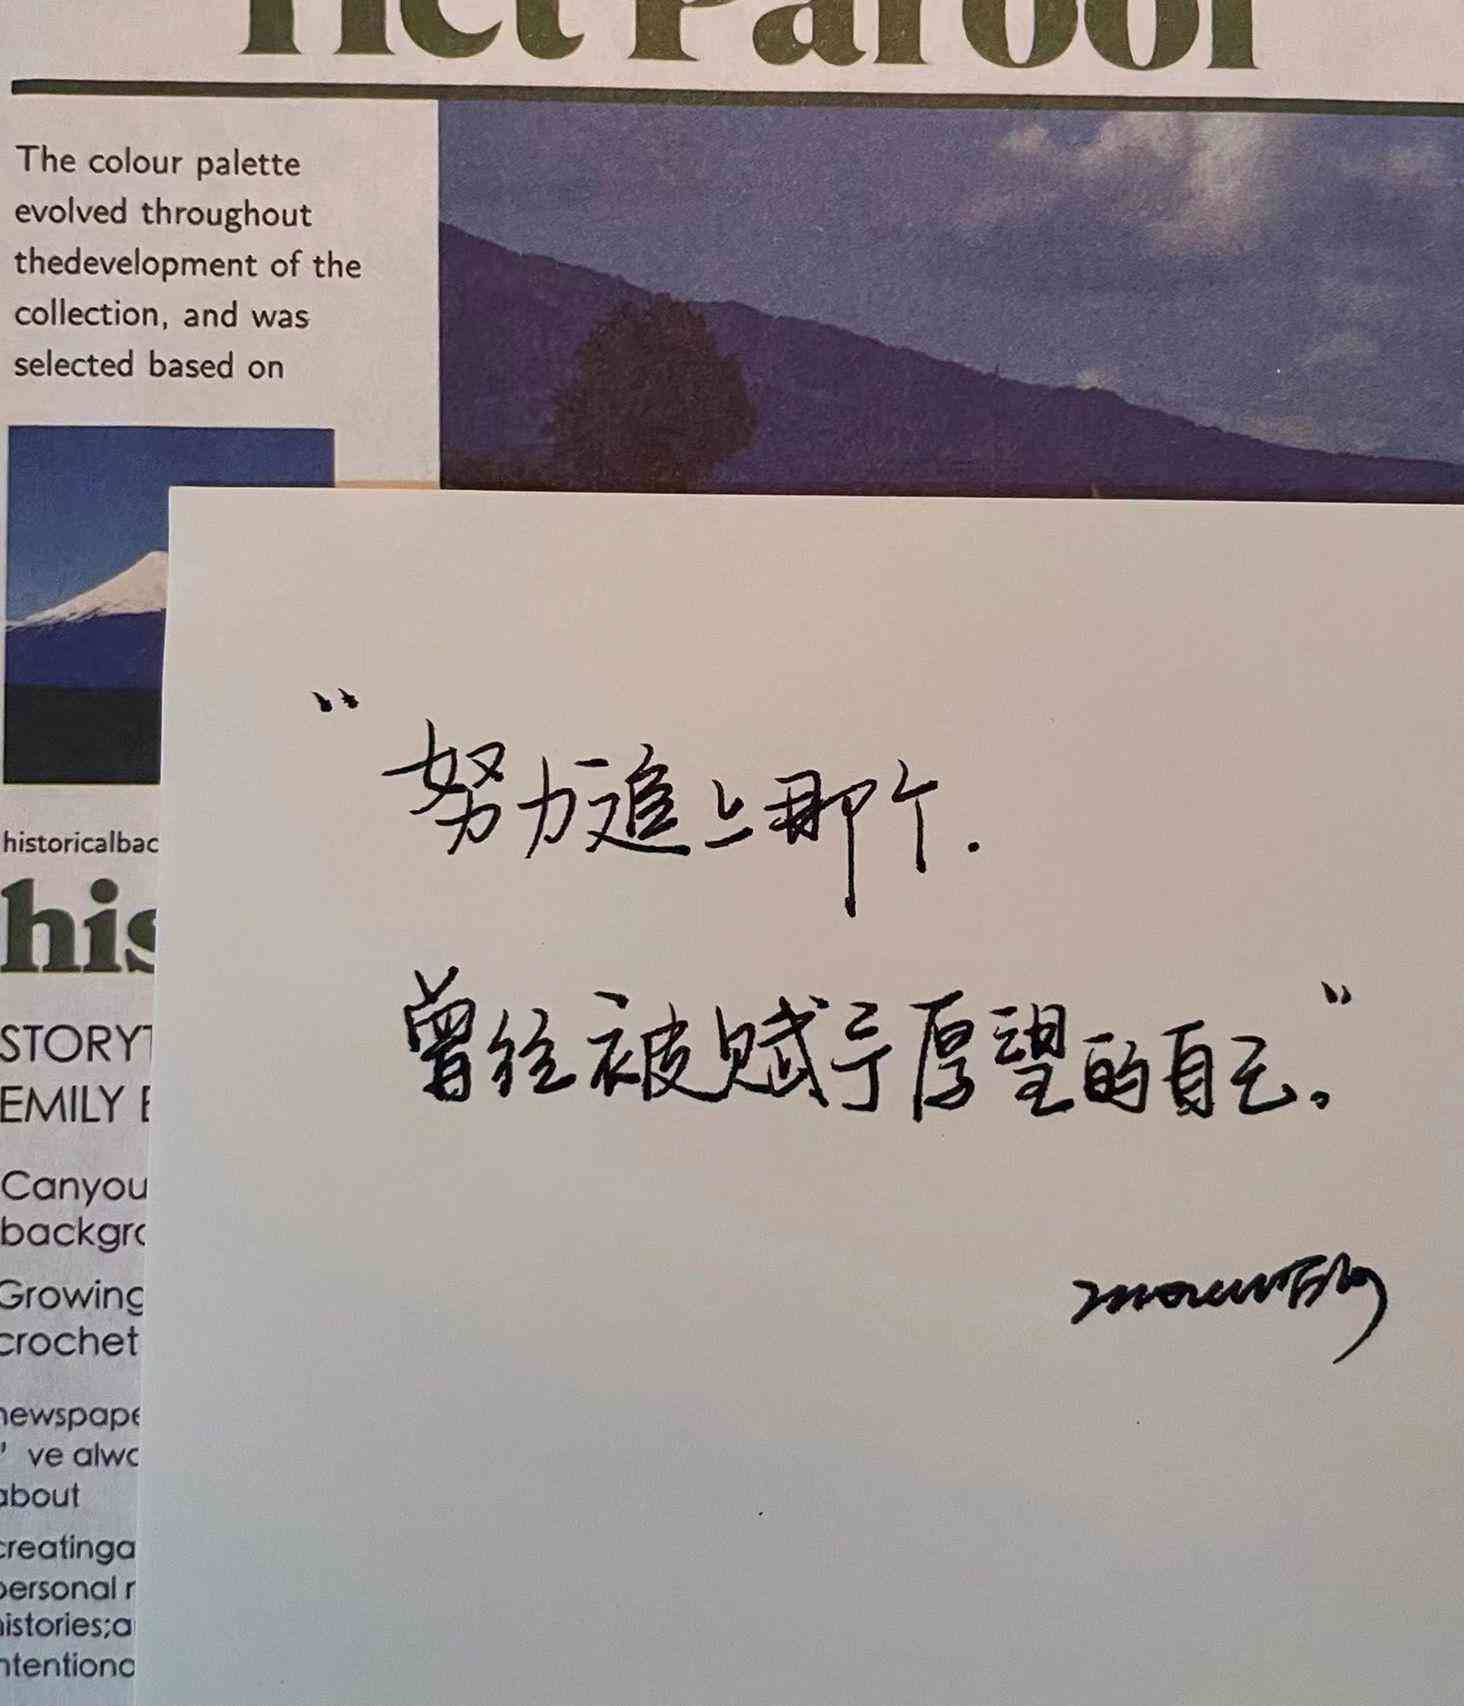 Het Parool
The colour palette
evolved throughout
thedevelopment of the
collection, and was
selected based on
historicalbac
his
STORYT
EMILY E
Canyou
backgro
Growing
crochet
newspape
' ve alwa
about
creatinga
personal r
histories;a
ntentiona
“努力追上那个.
曾经被赋予厚望的自己。”